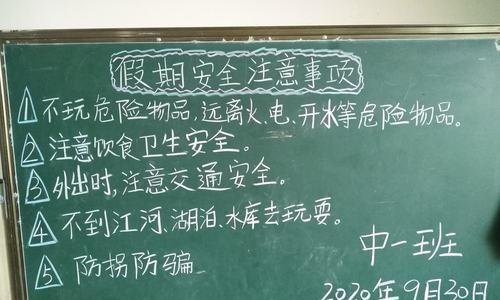 假期安全注意事项
1 不玩危险物品,远离火、电、开水等危险物品。
2 注意饮食卫生安全。
3 外出时,注意交通安全。
4 不到江河、湖泊、水库去玩耍。
5 防拐防骗
中一班
2020年9月30日